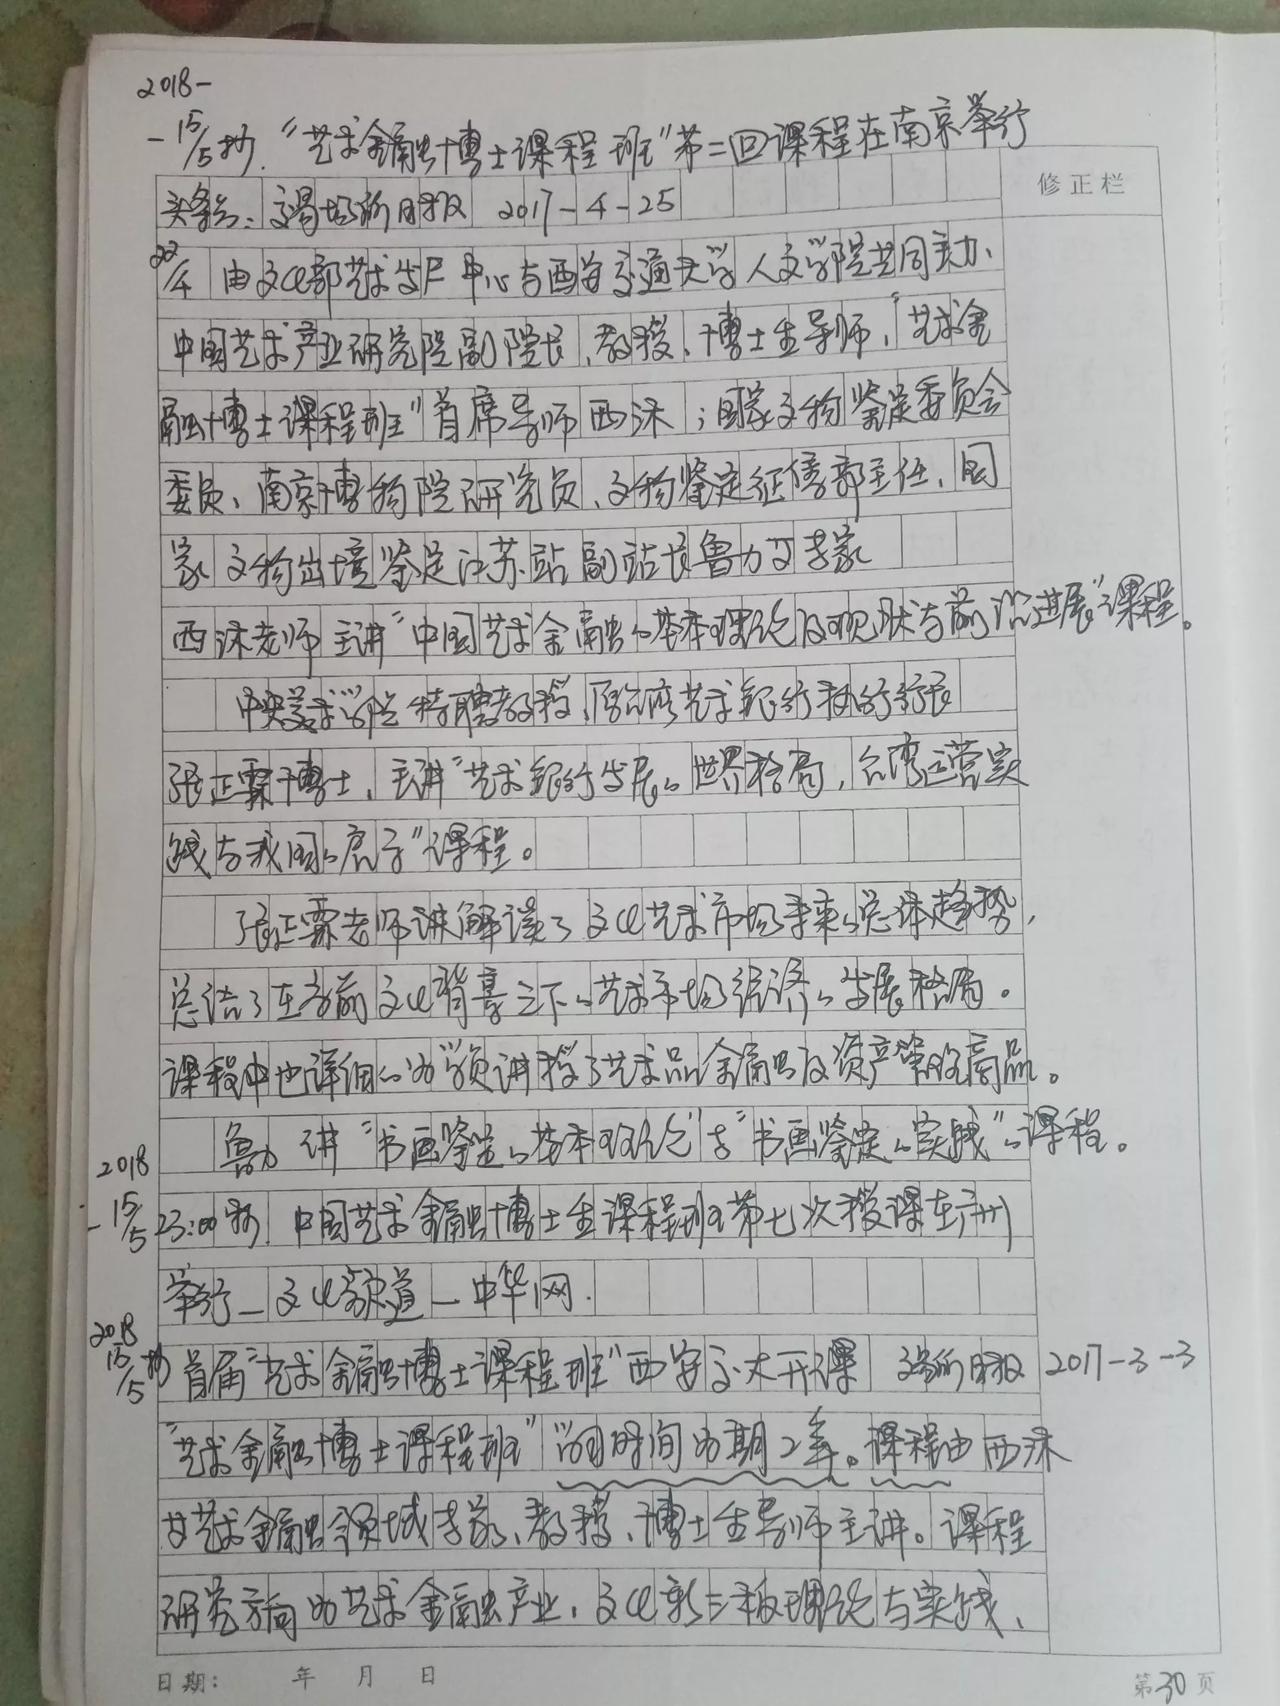 2018-
-15/5抄.“艺术金融博士课程班”第二回课程在南京举行
修正栏
头条号:交易场所时报 2017-4-25
22/4 由文化部艺术发展中心与西安交通大学人文学院共同主办、
中国艺术产业研究院副院长、教授、博士生导师,“艺术金
融博士课程班”首席导师西沐;国家文物鉴定委员会
委员、南京博物院研究员、文物鉴定征集部主任、国
家文物出境鉴定江苏站副站长鲁力等专家
西沐老师主讲“中国艺术金融的基本理论及现状与前沿进展”课程。
中央美术学院特聘教授、原台湾艺术银行执行行长
张正霖博士,主讲“艺术银行发展的世界格局,台湾运营实
践与我国的启示”课程。
张正霖老师讲解读了文化艺术市场未来的总体趋势,
总结了在当前文化背景之下的艺术市场经济的发展格局。
课程中也详细的为学员讲授了艺术品金融及资产策略商品。
鲁力 讲“书画鉴定的基本理论”与“书画鉴定的实践”的课程。
2018
-15/5 23:00抄.中国艺术金融博士生课程班第七次授课在广州
举行_文化频道_中华网.
2018
15/5抄 首届“艺术金融博士课程班”西安交大开课 交易所时报 2017-3-3
“艺术金融博士课程班”学习时间为期2年。课程由西沐
等艺术金融领域专家、教授、博士生导师主讲。课程
研究方向为艺术金融产业,文化新三板理论与实践、
日期: 年 月 日
第30页